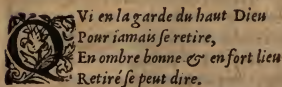 QVi en la garde du haut Dieu
Pour iamais se retire,
En ombre bonne & en fort lieu
Retiré se peut dire.